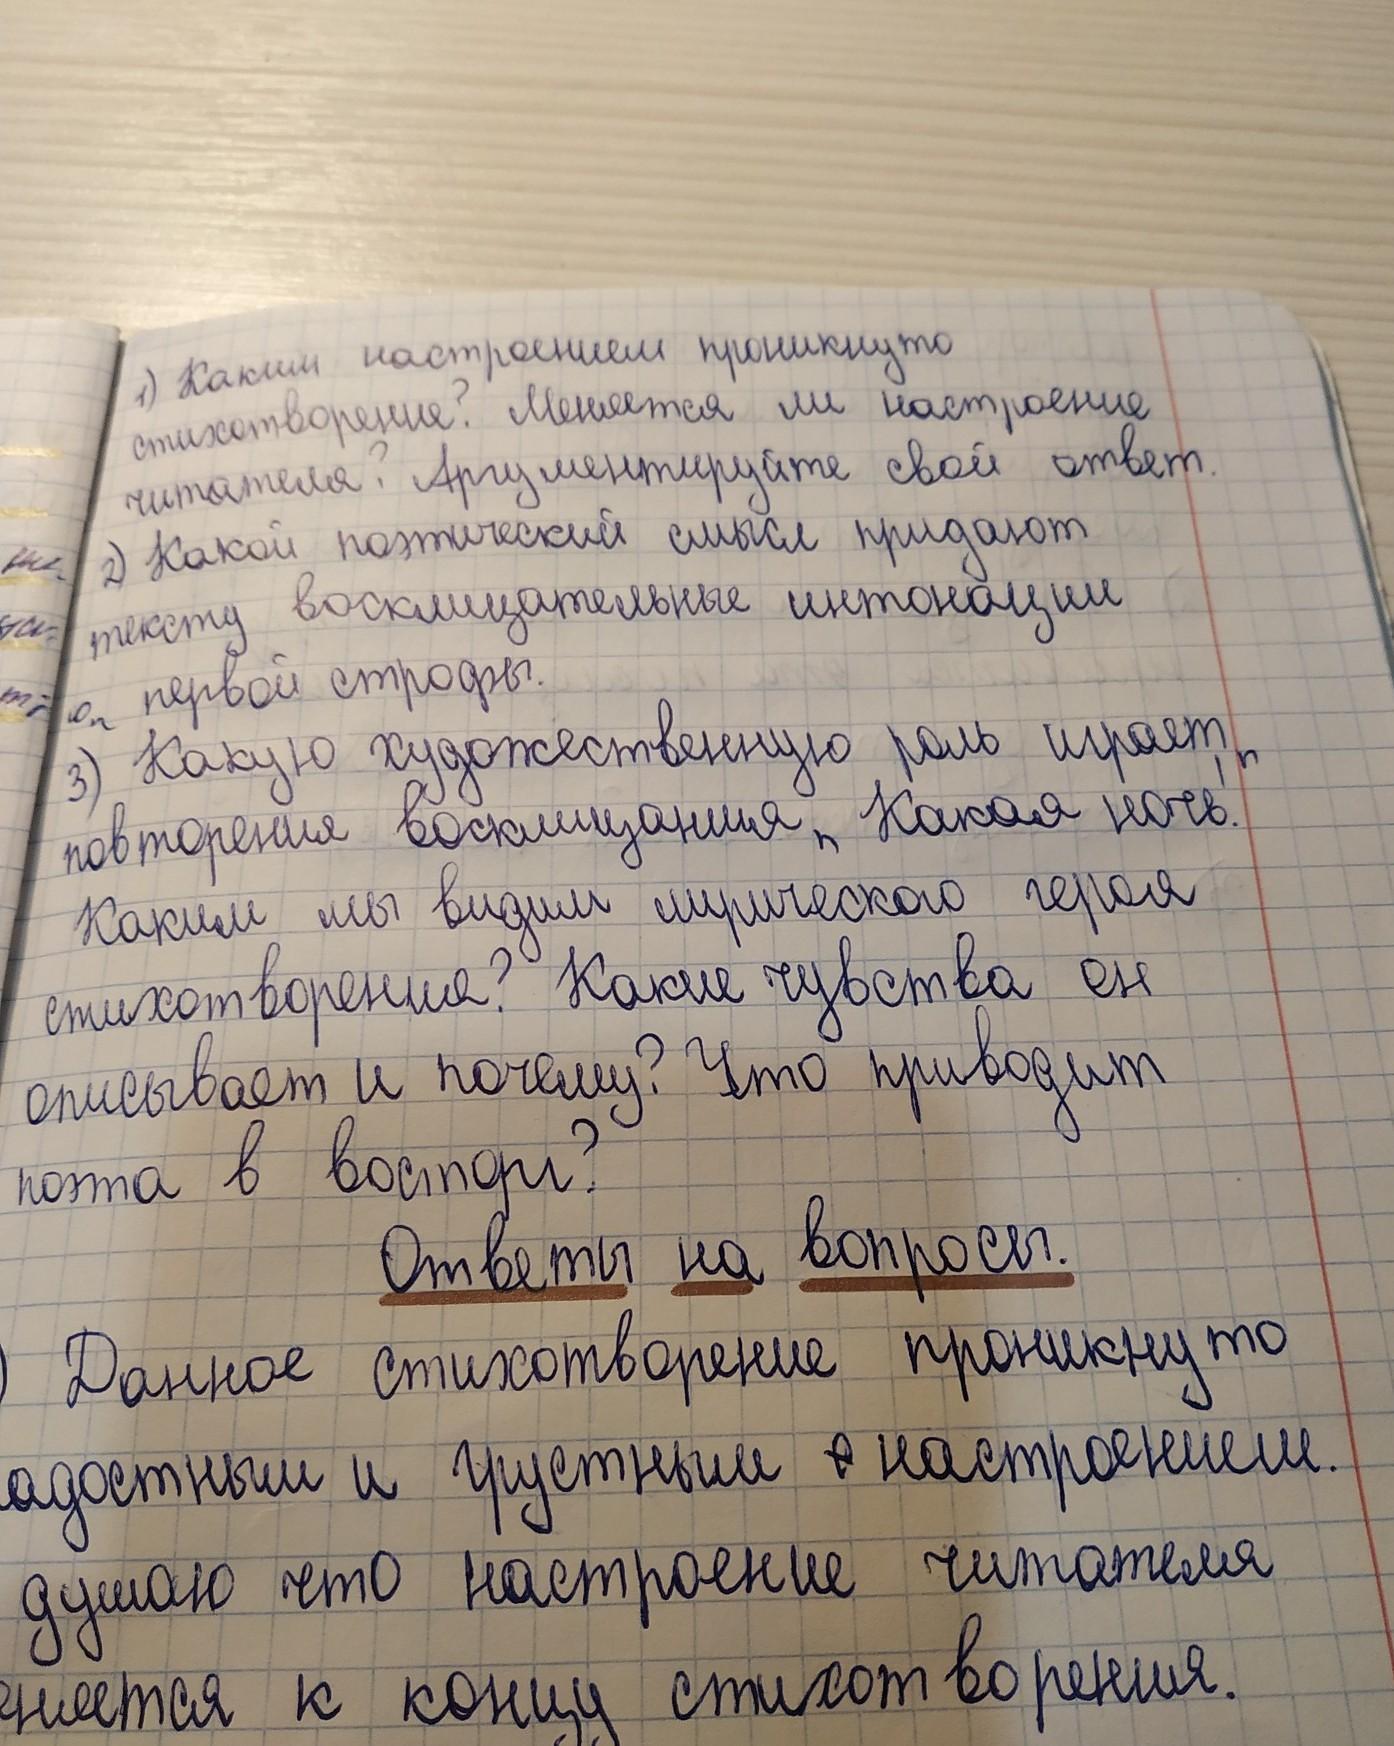 1) Каким настроением проникнуто
стихотворение? Меняется ли настроение
читателя? Аргументируйте свой ответ.
2) Какой поэтический смысл придают
тексту восклицательные интонации
первой строфы.
3) Какую художественную роль играет
повторения восклицания „ Какая ночь!"
Каким мы видим лирического героя
стихотворения? Какие чувства он
описывает и почему? Что приводит
поэта в восторг?
Ответы на вопросы.
) Данное стихотворение проникнуто
адостным и грустным настроением.
думаю что настроение читателя
еняется к концу стихотворения.